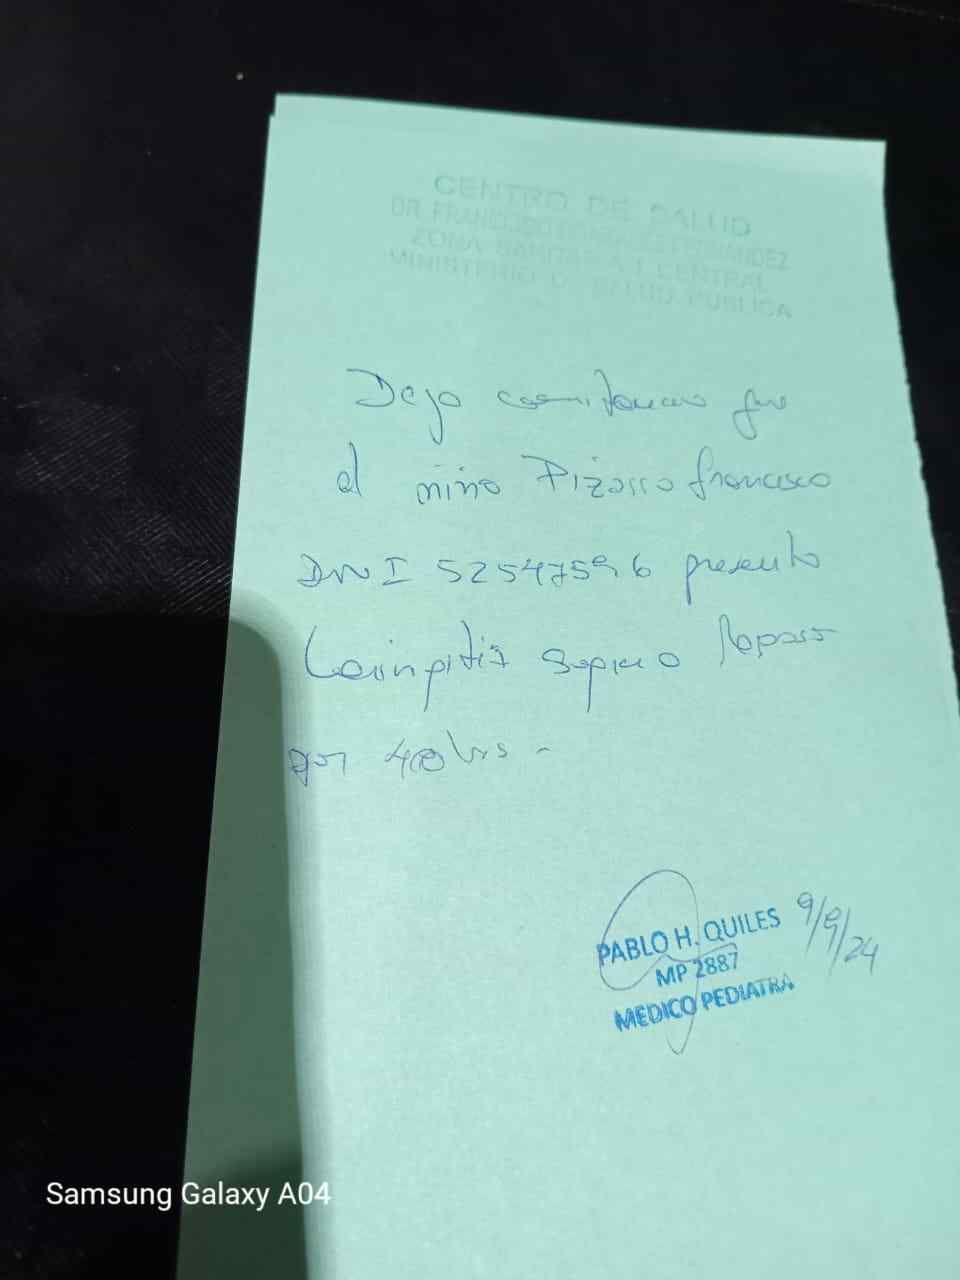 CENTRO DE SALUD
DR. FRANCISCO FERNANDEZ
ZONA SANITARIA I CENTRAL
MINISTERIO DE SALUD PUBLICA
Dejo constancia que
el niño Pizarro francisco
DNI 52547596 presenta
Laringitis sugiero Reposo
por 48 hrs -
PABLO H. QUILES
MP 2887
MEDICO PEDIATRA
9/9/24
Samsung Galaxy A04